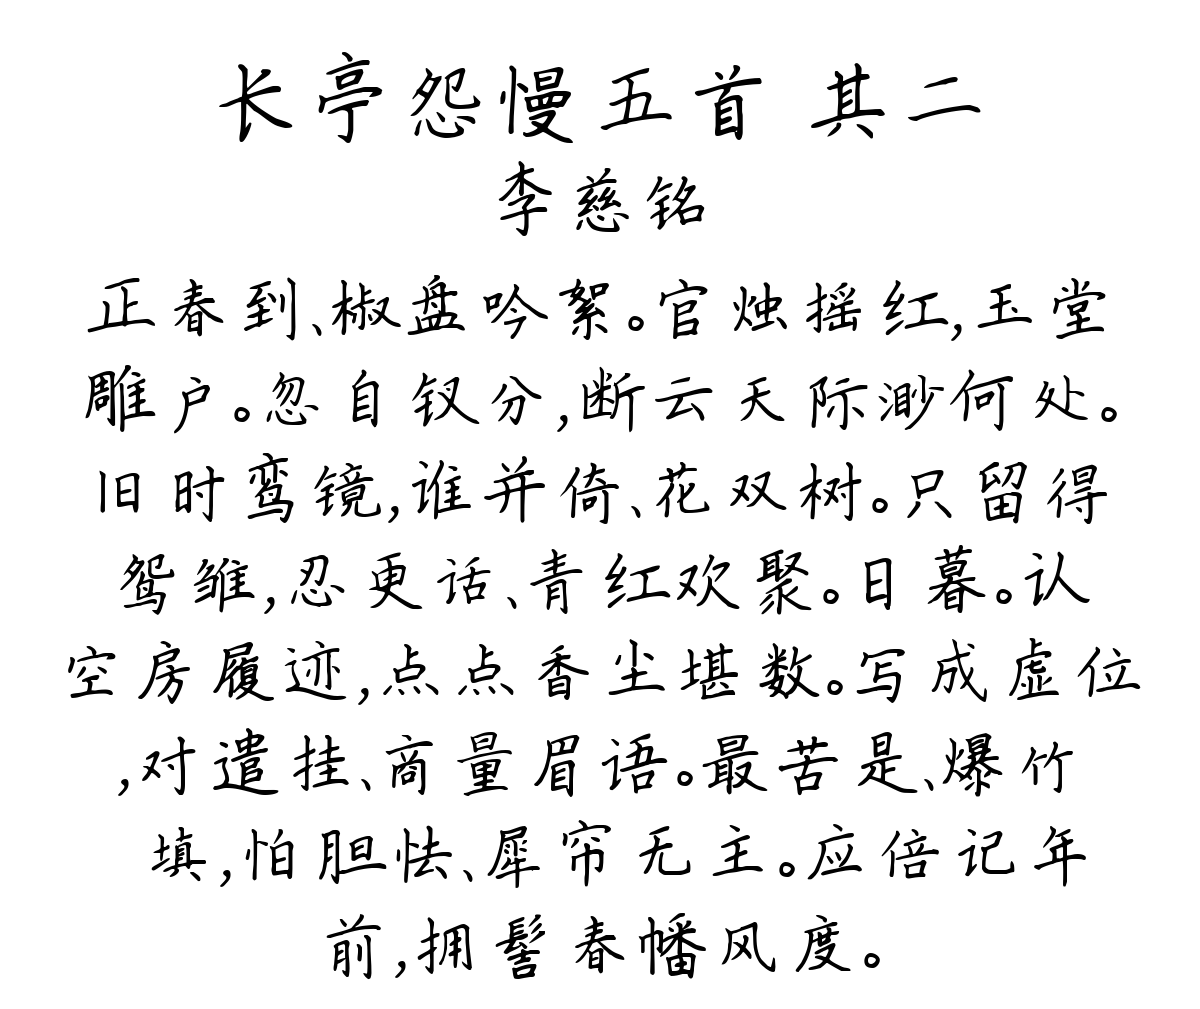 长亭怨慢五首 其二
李慈铭
正春到、椒盘吟絮。官烛摇红,玉堂
雕户。忽自钗分,断云天际渺何处。
旧时鸾镜,谁并倚、花双树。只留得
鸳雏,忍更话、青红欢聚。日暮。认
空房履迹,点点香尘堪数。写成虚位
,对遣挂、商量眉语。最苦是、爆竹
填,怕胆怯、犀帘无主。应倍记年
前,拥髻春幡风度。